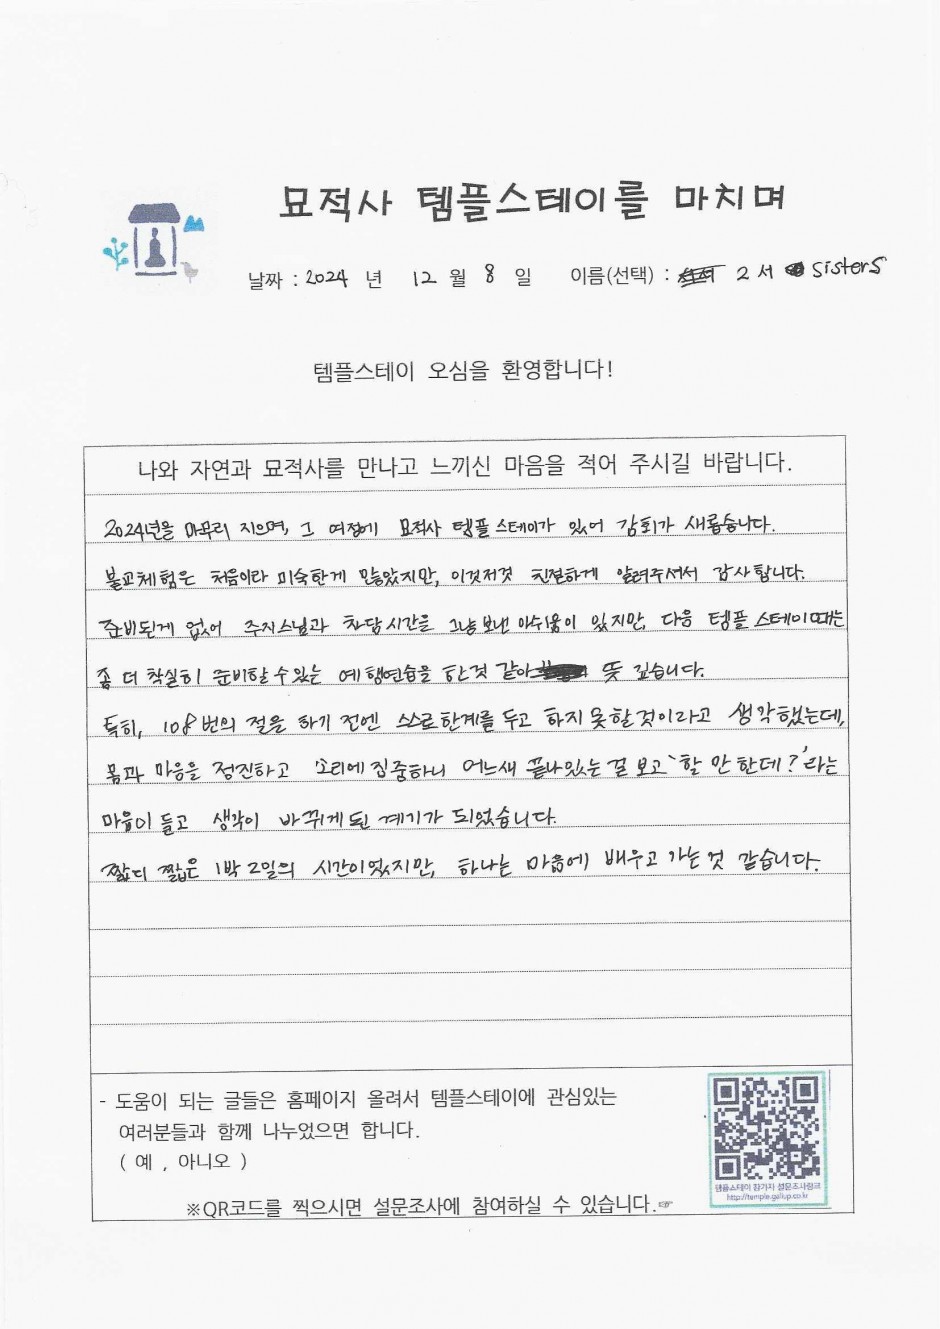 묘적사 템플스테이를 마치며
날짜 : 2024 년 12 월 8 일 이름(선택) : 2서 sisters
템플스테이 오심을 환영합니다!
나와 자연과 묘적사를 만나고 느끼신 마음을 적어 주시길 바랍니다.
2024년을 마무리 지으며, 그 여정에 묘적사 템플 스테이가 있어 감회가 새롭습니다.
불교체험은 처음이라 미숙한게 많았지만, 이것저것 친절하게 알려주셔서 감사합니다.
준비된게 없어 주지스님과 차담시간을 그냥 보낸 아쉬움이 있지만, 다음 템플 스테이때는
좀 더 착실히 준비할 수 있는 예행연습을 한것 같아 뜻 깊습니다.
특히, 108번의 절을 하기 전엔 스스로 한계를 두고 하지 못할 것이라고 생각했는데,
몸과 마음을 정진하고 소리에 집중하니 어느새 끝나있는 걸 보고 '할 만 한데?'라는
마음이 들고 생각이 바뀌게 된 계기가 되었습니다.
짧디 짧은 1박 2일의 시간이었지만, 하나는 마음에 배우고 가는것 같습니다.
- 도움이 되는 글들은 홈페이지 올려서 템플스테이에 관심있는
여러분들과 함께 나누었으면 합니다.
( 예 , 아니오 )
템플스테이 참가자 설문조사링크
http://temple.gallup.co.kr
※QR코드를 찍으시면 설문조사에 참여하실 수 있습니다.☞